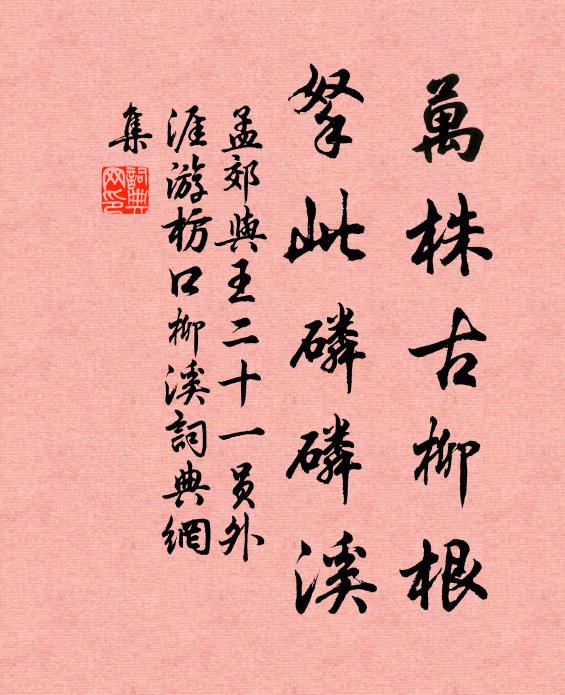 萬株古柳根
拏此磷磷溪
孟郊與王二十一員外
涯游枋口柳溪詞典網
集
詞典
网印